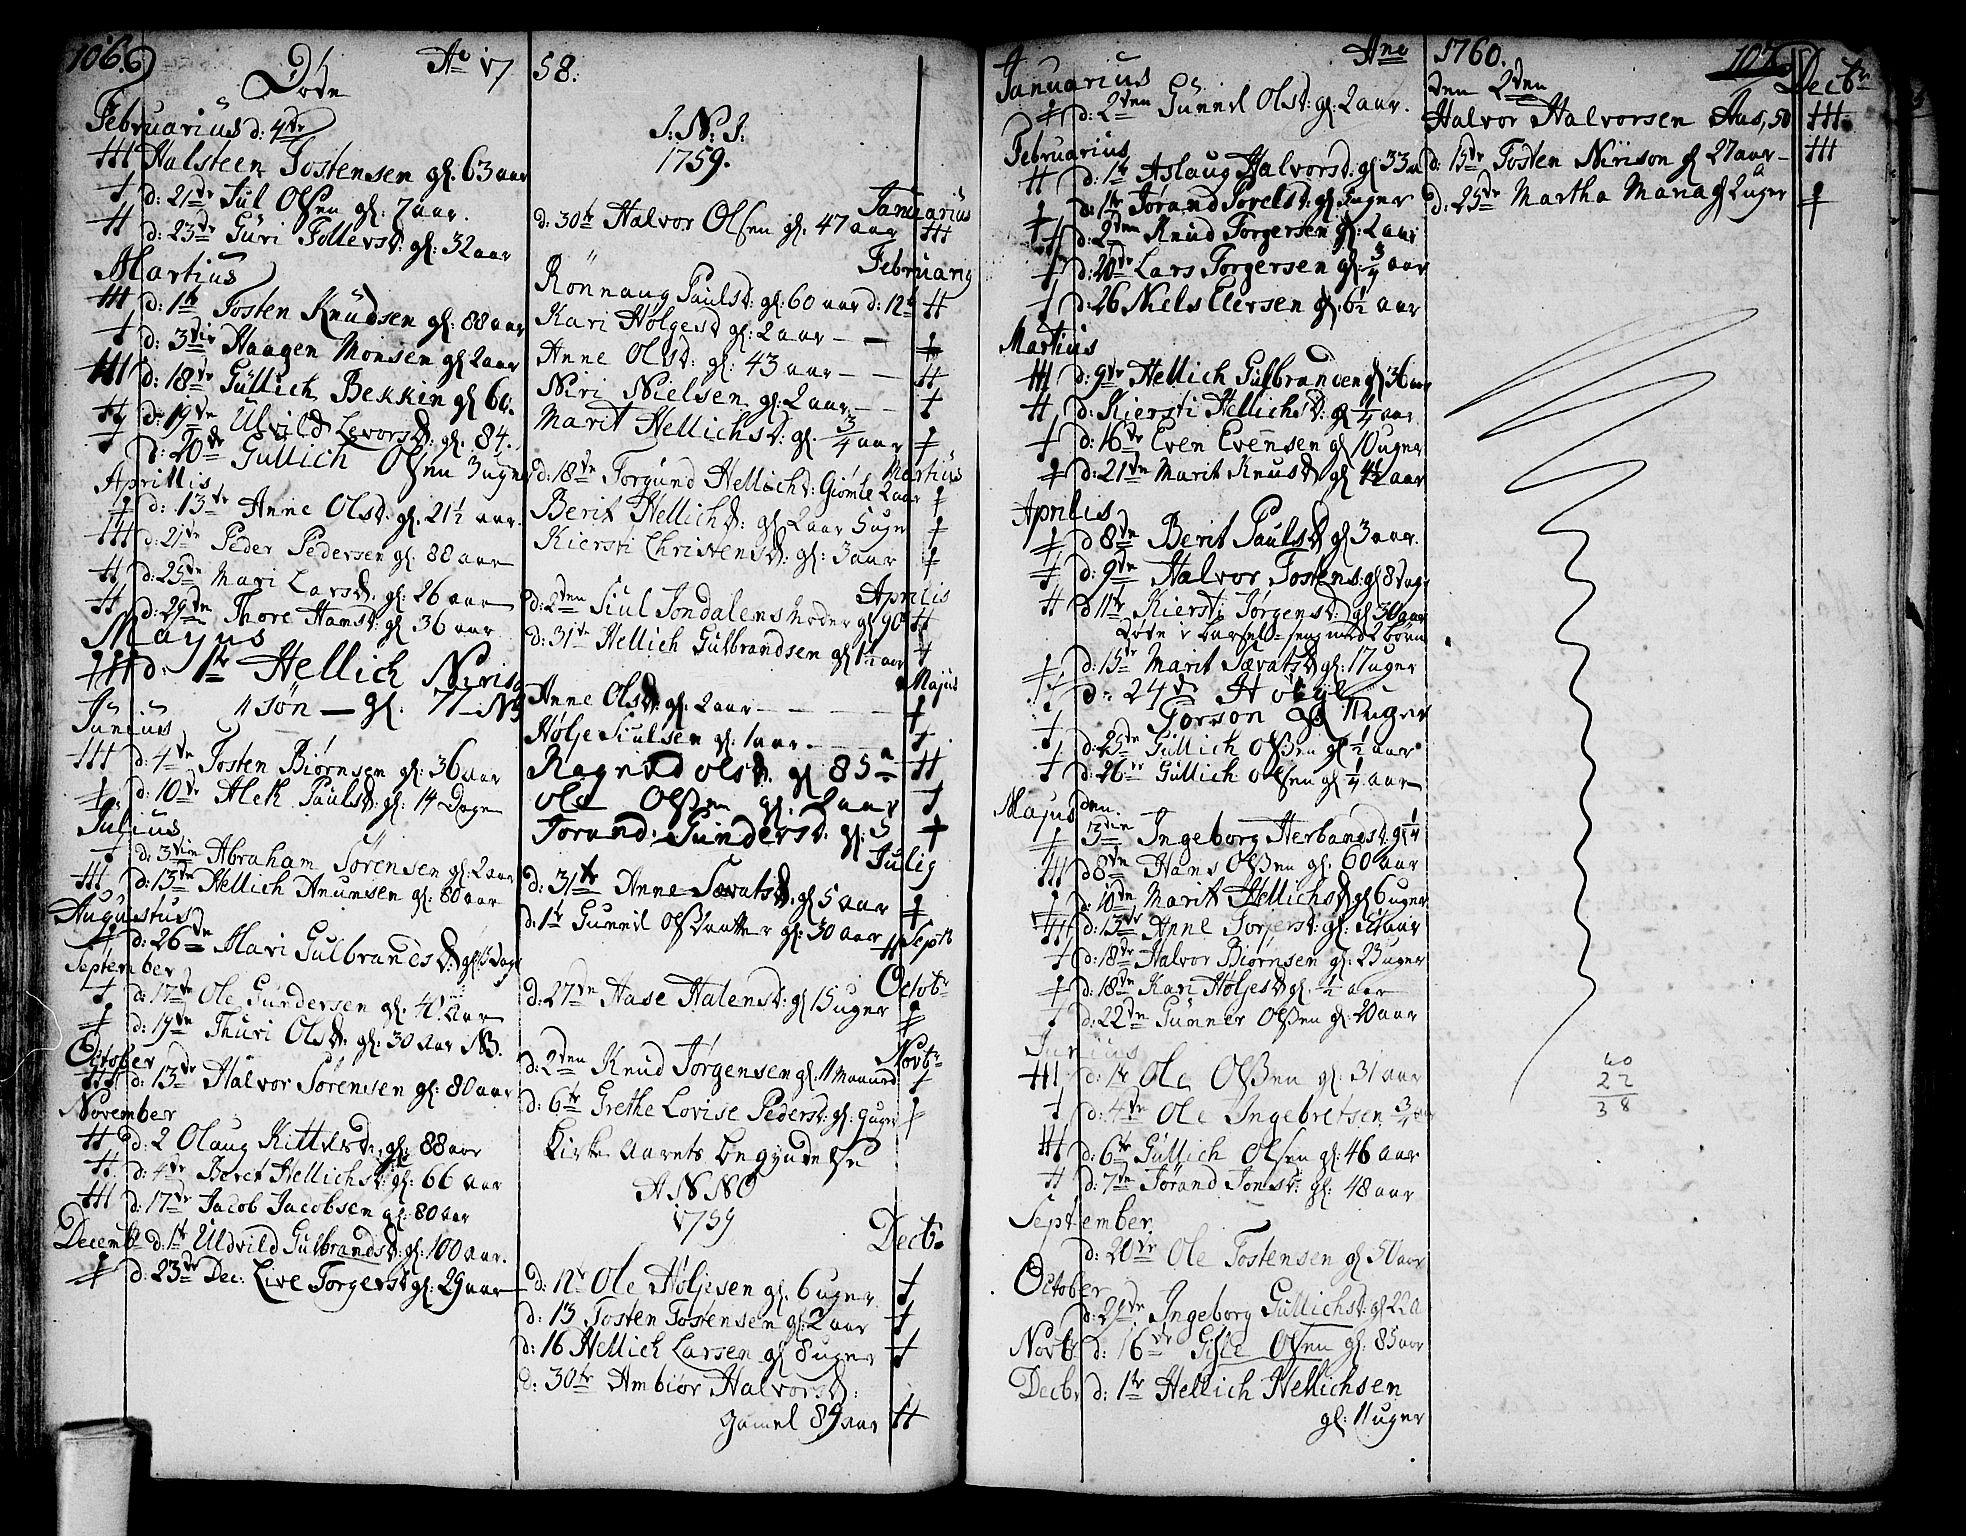 106.
Døde Ao 17
Februarius d: 4de
Halsteen Tostensen gl. 63 aar
d: 21de Jul Olsen gl: 7 aar.
d: 23de Guri Follersd: gl: 32 aar
Martius
d: 1te Tosten Knudsen gl: 88 aar
d: 3die Haagen Monsen gl 2 aar
d: 18de Gullich Bekkin gl 60.
d: 19de Ulvild Levorsd: gl. 84.
d: 20de Gullich Olsen 3 uger
Aprillis
d: 13te Anne Olsd: gl. 21½ aar.
d: 21de Peder Pedersen gl: 88 aar
d: 25de Mari Larsd: gl: 26 aar
d: 29de Thore Hansd: gl 36 aar
Majus
d: 1te Hellich Niris
søn - gl. 77 - NB
Junius
d: 4de Tosten Biørnsen gl: 36 aar
d: 10de Alek Paulsd: gl: 14 Dage
Julius
d: 3die Abraham Sørensen gl: 2 aar
d: 13de Hellich Anunsen gl: 80 aar
Augustus
d: 26de Mari Gulbrandsd: gl: Dage
September
d: 17de Ole Gundersen gl. 4 aar
d: 19de Thuri Olsd: gl: 30 aar NB.
October
d: 13de Halvor Sørensen gl: 80 aar
November
d: 2 Olaug Kittelsd: gl: 88 aar
d: 4de Beret Hellichsd: gl: 66 aar
d: 17de Jacob Jacobsen gl: 80 aar
Decemb d: 1te Uldvild Gulbrandsd: gl: 100 aar.
d: 23de Dec: Live Torgersd gl: 29 aar
58.
J: N: J:
1759.
Januarius
d: 30te Halvor Olsen gl: 47 aar
Februarij
Rönnaug Paulsd: gl: 60 aar d: 12te
Kari Holgesd gl: 2 aar
Anne Olsd: gl: 43 aar
Niri Nielsen gl: 2 aar
Marit Hellichsd: gl. 3/4 aar
Martius
d: 18de Torgund Hellichsd: Giømle 2 aar
Berit Hellichsd: gl: 2 aar 5 uger
Kiersti Christensd: gl: 3 aar
Aprilis
d: 2den Siul Jondalens moder gl 90
d: 31te Hellich Gulbrandsen gl 1½ aar
Majus
Anne Olsd: gl: 2 aar
Holje Siulsen gl: 1 aar
Ragnild olsd. gl 85 a
ole Olsen gl. 2 aar
Torand: Gundersd: gl: 5
Julij
d: 31te Anne Sævatsd: gl 5 aar
d: 1te Gunnil Olsdaatter gl: 30 aar Septb
Octob:
d: 27de Aase Halensd: gl 15 uger
Novb:
d: 2den Knud Jørgensen gl 11 Maaned
d: 6te Grethe Lovise Pedersd: gl: 9 uger
Kirke Aarets begyndelse
ANNO
1759
Decb:
d: 12te Ole Høljesen gl. 6 uger
d: 13 Tosten Tostensen gl: 2 aar
d: 16 Hellich Larsen gl 8 uger
d: 30te Ambiør Halvorsd:
gamel 89 aar
Ano
Januarius
d: 2den Gunnil Olsd: gl: 2 aar.
Februarius
d: 1te Aslaug Halvorsd: gl 33 a
d: 1te Jørand Torelsd: gl uger
d: 2den Knud Torgersen gl: 2 aar
d: 20de Lars Torgersen gl: 3/4 aar
d: 26 Niels Elersen gl: 6½ aar
Martius
d: 9de Hellich Gulbrandsen gl 36 aar
d: Kiersti Hellichsd: gl 1/4 aar
d: 16de Even Evensen gl 10 uger
d: 21de Marit Knusd: gl 4½ aar
Aprilis
d 8de Berit Paulsd gl 3 aar.
d: 9de Halvor Tostens: gl 8 dage
d 11te Kiersti Jørgensd: gl 30 aar
Døde i barsel-seng med 2 børn
d: 15de Marit Sævatsd: gl: 17 uger
d: 24de
Gorson gl 11 uger
d: 25de Gullich Olsen gl ½ aar
d: 26de Gullich Olsen gl 1/4 aar
Majus den
3die Ingeborg Herbandsd: gl 1/4
d 8de Hans Olsen gl: 60 aar
d: 10de Marit Hellichsd gl 6 uger
d: 13de Anne Torjersd: gl: aar
d: 18de Halvor Biørnsen gl: 23 uger
d: 18de Kari Holjesd: gl. ½ aar
d: 22de Gunner Olsen gl: 20 aar
Junius
d: 1te Ole Olsen gl: 31 aar
d: 4de Ole Ingebretsen 3/4 aar
d: 6te Gullich Olsen gl: 46 aar
d: 7de Jorand Jonsd: gl: 48 aar
September
d: 20de Ole Tostensen gl 50 aar
October
d: 21de Ingeborg Gullichsd: gl 22 a
Novb: d: 16de Gisle Olsen gl: 85 aar
Decbr d: 1te Hellich Hellichsen
gl: 11 uger
1760.
107.
Decbr
den 2den
Halvor Halvorsen Aas, 50
d: 15de Tosten Nirison gl 27 aar
d: 25de Martha Maria gl 2 uger
60
22
38